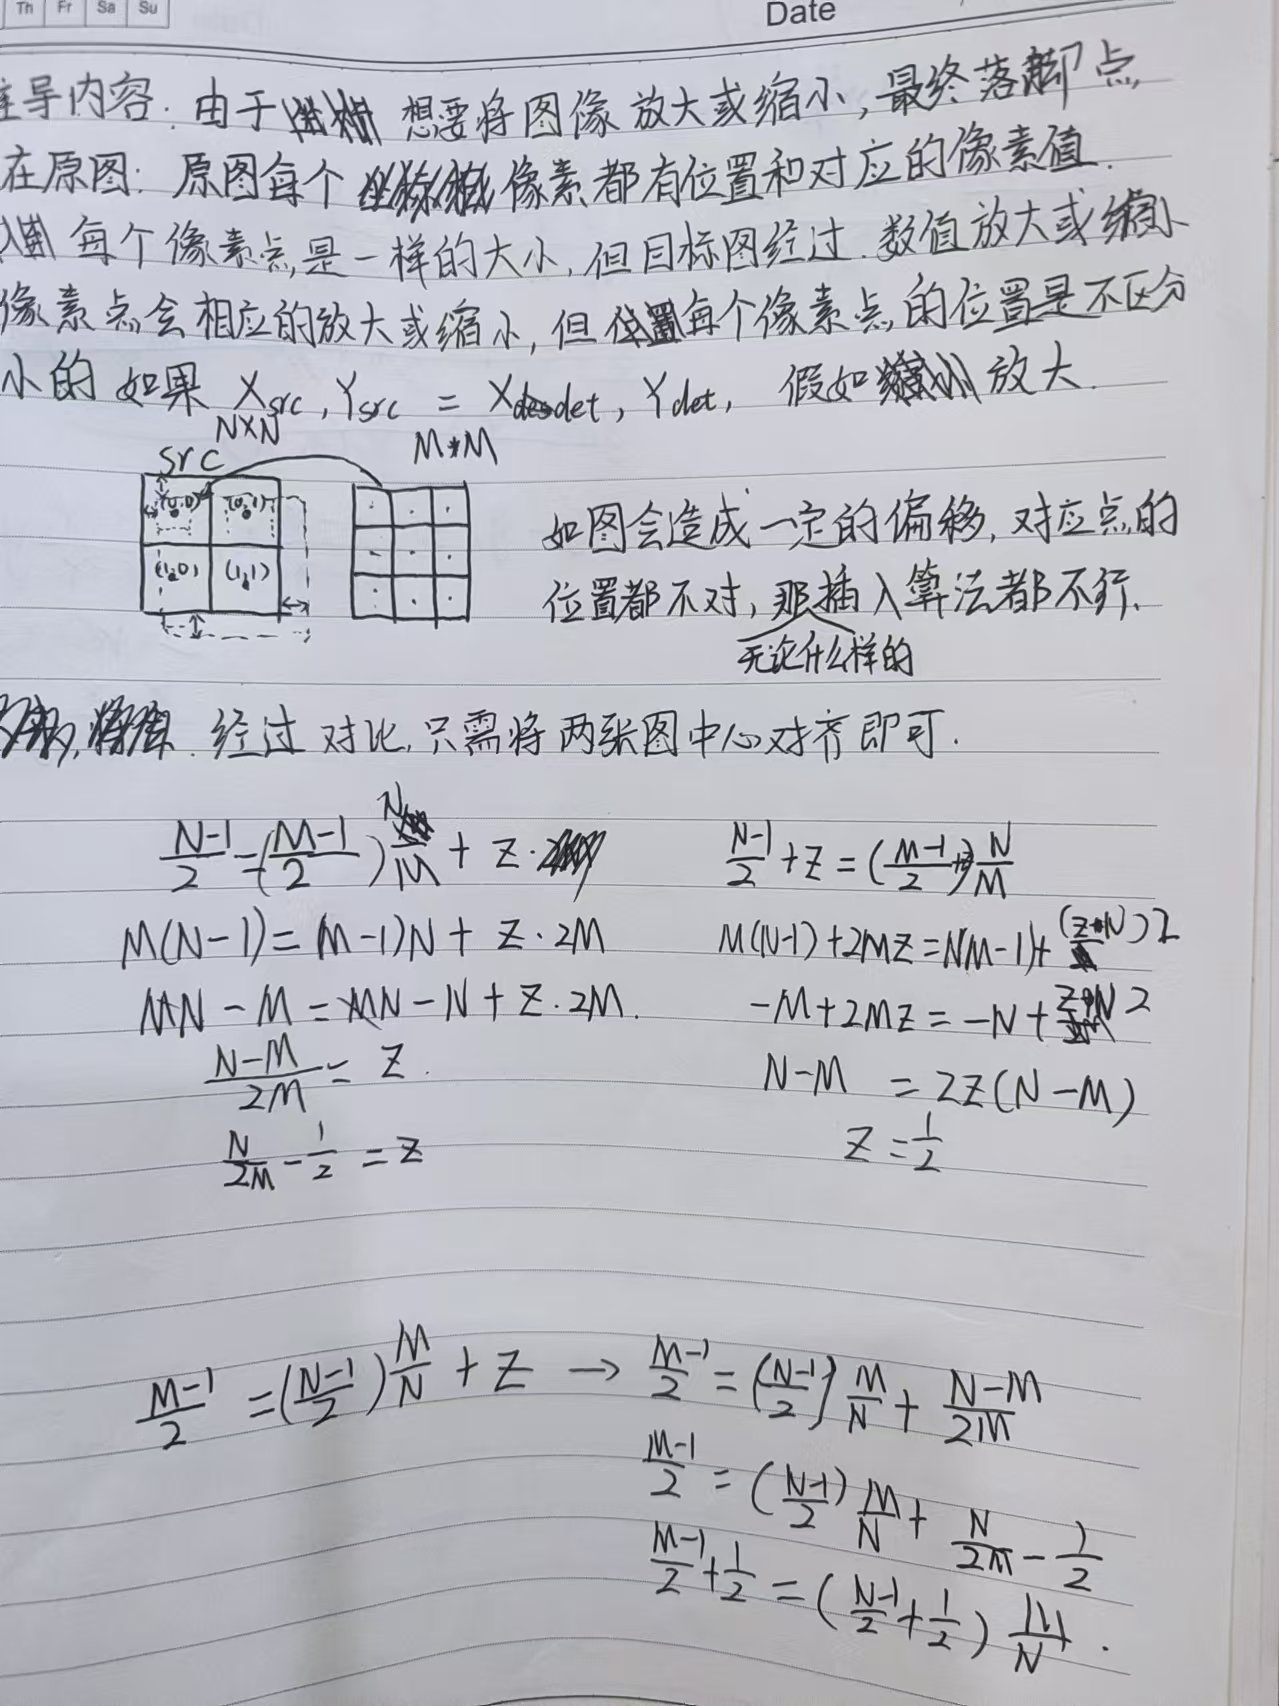 Th Fr Sa Su
Date
导内容:由于 想要将图像放大或缩小,最终落脚点
在原图:原图每个 像素都有位置和对应的像素值.
每个像素点是一样的大小,但目标图经过.数值放大或缩小
像素点会相应的放大或缩小,但 每个像素点的位置是不区分
小的 如果 Xsrc, Ysrc = Xdet, Ydet, 假如 放大.
N×N
M*M
src
(0,0) (0,1)
(1,0) (1,1)
如图会造成一定的偏移,对应点的
位置都不对,那插入算法都不行.
无论什么样的
经过对比,只需将两张图中心对齐即可.
N-1/2 = (M-1/2) N/M + Z·
M(N-1) = (M-1)N + Z·2M
MN - M = MN - N + Z·2M.
N-M/2M = Z.
N/2M - 1/2 = Z
N-1/2 + Z = (M-1/2 + Z) N/M
M(N-1) + 2MZ = N(M-1) + (Z·N)2
-M + 2MZ = -N + Z·N 2
N-M = 2Z(N-M)
Z = 1/2
M-1/2 = (N-1/2) M/N + Z → M-1/2 = (N-1/2) M/N + N-M/2M
M-1/2 = (N-1/2) M/N + N/2M - 1/2
M-1/2 + 1/2 = (N-1/2 + 1/2) M/N .